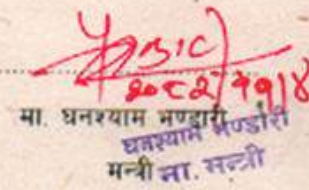 २०८२/११/४
मा. घनश्याम भण्डारी
घनश्याम भण्डारी
मन्त्री मा. मन्त्री